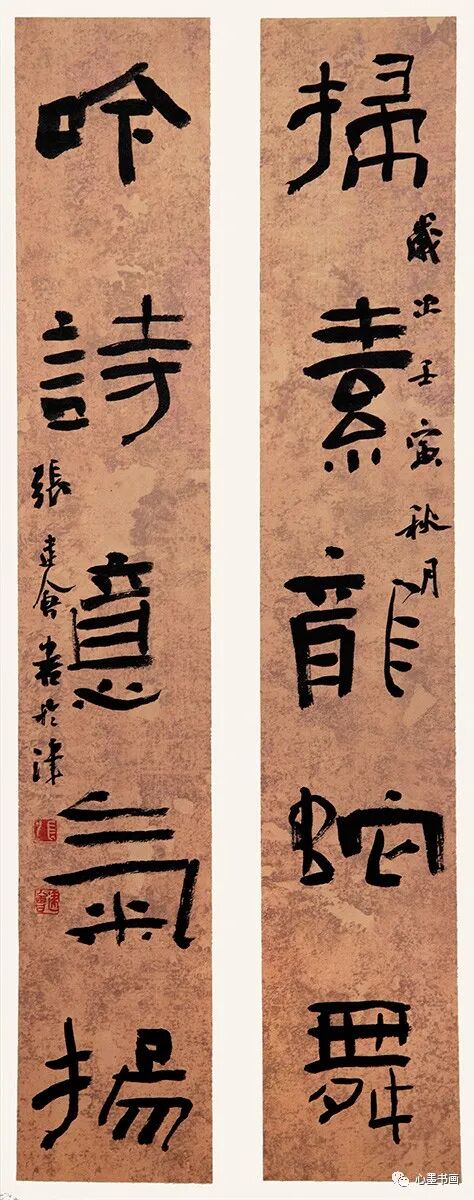 掃素龍蛇舞
歲次壬寅秋月
吟詩意氣揚
張建會書於津
心墨书画